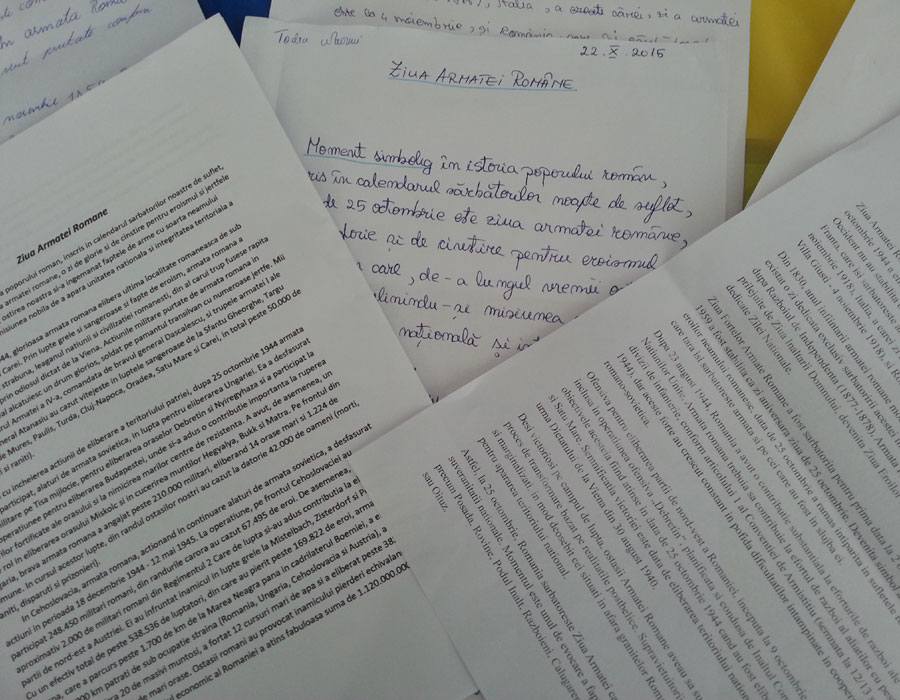 în armata Româ
sunt purtate combin
noiembrie
Italia, a creat cărei, și a armatei
este ca 4 noiembrie, și România
Todea
22.X.2015
ZIUA ARMATEI ROMÂNE
Moment simbolig în istoria poporului român,
ris în calendarul sărbătorilor noapte de suflet,
de 25 octombrie este ziua armatei române,
lorie și de cinstire pentru eroismul
care, de-a lungul vremii
linindu-și misiunea
națională și in
Ziua Armatei Romane
a poporului roman, inscris in calendarul sarbatorilor noastre de suflet,
a armatei romane, o zi de glorie si de cinstire pentru eroismul si jertfele
ostirea noastra si-a ingemanat faptele de arme cu soarta neamului
misiunea nobila de a apara unitatea nationala si integritatea teritoriala a
44, glorioasa armata romana elibera ultima localitate romaneasca de sub
Carei. Prin lupte grele si sangeroase si fapte de eroism, armata romana a
strabuna, leagan al natiunii si civilizatiei romanesti, din al carui trup fusese rapita
prin odiosul dictat de la Viena. Actiunile militare purtate de armata romana in
al alcatuiesc un drum glorios, soldat pe pamantul transilvan cu numeroase jertfe. Mii
drul Armatei a IV-a, comandata de bravul general Dascalescu, si trupele armatei I ale
general Atanasiu au cazut vitejeste in luptele sangeroase de la Sfantu Gheorghe, Targu
de Mures, Paulis, Turda, Cluj-Napoca, Oradea, Satu Mare si Carei, in total peste 50.000
i si raniti).
cu incheierea actiunii de eliberare a teritoriului patriei, dupa 25 octombrie 1944 armata
participat, alaturi de armata sovietica, in lupta pentru eliberarea Ungariei. Ea a desfasurat
militare pe Tisa mijlocie, pentru eliberarea oraselor Debretin si Nyiregyhaza si a participat la
operatiunea pentru eliberarea Budapestei, unde si-a adus o contributie importanta la ruperea
rilor fortificate ale orasului si la nimicirea marilor centre de rezistenta. A avut, de asemenea, un
rol in eliberarea orasului Miskolc si in cucerirea muntilor Hegyalya, Bukk si Matra. Pe frontul din
garia, brava armata romana a angajat peste 210.000 militari, eliberand 14 orase mari si 1.224 de
omune. In cursul acestor lupte, din randul ostasilor nostri au cazut la datorie 42.000 de oameni (morti,
raniti, disparuti si prizonieri).
In Cehoslovacia, armata romana, actionand in continuare alaturi de armata sovietica, a desfasurat
actiuni in perioada 18 decembrie 1944 - 12 mai 1945. La operatiune, pe frontul Cehoslovaciei au
participat 248.450 militari romani, din randurile carora au cazut 67.495 de eroi. De asemenea,
aproximativ 2.000 de militari romani din Regimentul 2 Care de lupta si-au adus contributia la el
partii de nord-est a Austriei. Ei au infruntat inamicul in lupte grele la Mistelbach, Zistersdorf si P
Cu un efectiv total de peste 538.536 de luptatori, din care au pierit peste 169.822 de eroi, arma
ana, care a parcurs peste 1.700 de km de la Marea Neagra pana in cadrilaterul Boemiei, a e
000 km patrati de sub ocupatie straina (Romania, Ungaria, Cehoslovacia si Austria), a
ra 20 de masivi muntosi, a fortat 12 cursuri mari de apa si a eliberat peste 38.
de mari orase. Ostasii romani au provocat inamicului pierderi echivalan
economic al Romaniei a atins fabuloasa suma de 1.120.000.000
Ziua Armatei R
octombrie 1944 a
Occident nu au avut
Franta, care isi sarbatoreste
noiembrie 1918, Italia, a cărei zi
Villa Giusti - 4 noiembrie 1918) si
Din 1830, anul infiintarii armatei romane moderne
existat o zi dedicata exclusiv sarbatoririi acestei in
dupa Razboiul de Independenta (1877-1878), Armata
prilejurile de Ziua Inaltarii Domnului, devenita Ziua Eroilor
dedicate Zilei Nationale.
Ziua Fortelor Armate Romane a fost sarbatorita pentru prima data la 2
1959 a fost stabilita ca zi aniversara ziua de 25 octombrie. Devenita sarbatoare
eroilor neamului romanesc, data de 25 octombrie a ramas intiparita in sufletele
care tari isi sarbatoreste armata si pe cei care au fost in slujba ei.
Dupa 23 august 1944, Romania a avut o contributie substantiala la eforturile de razboi al
Natiunilor Unite. Armata romana trebuia sa contribuie la efortul de razboi al aliatilor cu
divizii de infanterie, conform articolului 1 al Conventiei de Armistitiu (semnata la 12/13
1944), dar aceste forte au crescut constant in pofida dificultatilor intampinate in cooper
romano-sovietica.
Ofensiva pentru eliberarea partii de nord-vest a Romaniei, inceputa la 9 octombr
inclusa in operatiunea ofensiva „Debretin", planificata si condusa de Inaltul Con
obiectivele acesteia fiind atinse in data de 25 octombrie 1944 cand au fost el
si Satu Mare. Semnificatia victoriei este data de eliberarea teritoriului nat
urma Dictatului de la Viena din 30 august 1940.
Desi victoriosi pe campul de lupta, ostasii Armatei Romane aveau sa s
proces de transformare bazat pe realitatile postbelice. Supravietuit
si marginalizati, in mod deosebit cei situati in afara granitelor R
pentru apararea teritoriului national.
Astfel, la 25 octombrie, Romania sarbatoreste Ziua Armatei
suveranitatii nationale. Momentul este unul de evocare a fap
precum Posada, Rovine, Podul Inalt, Razboieni, Calugaren
sau Oituz.